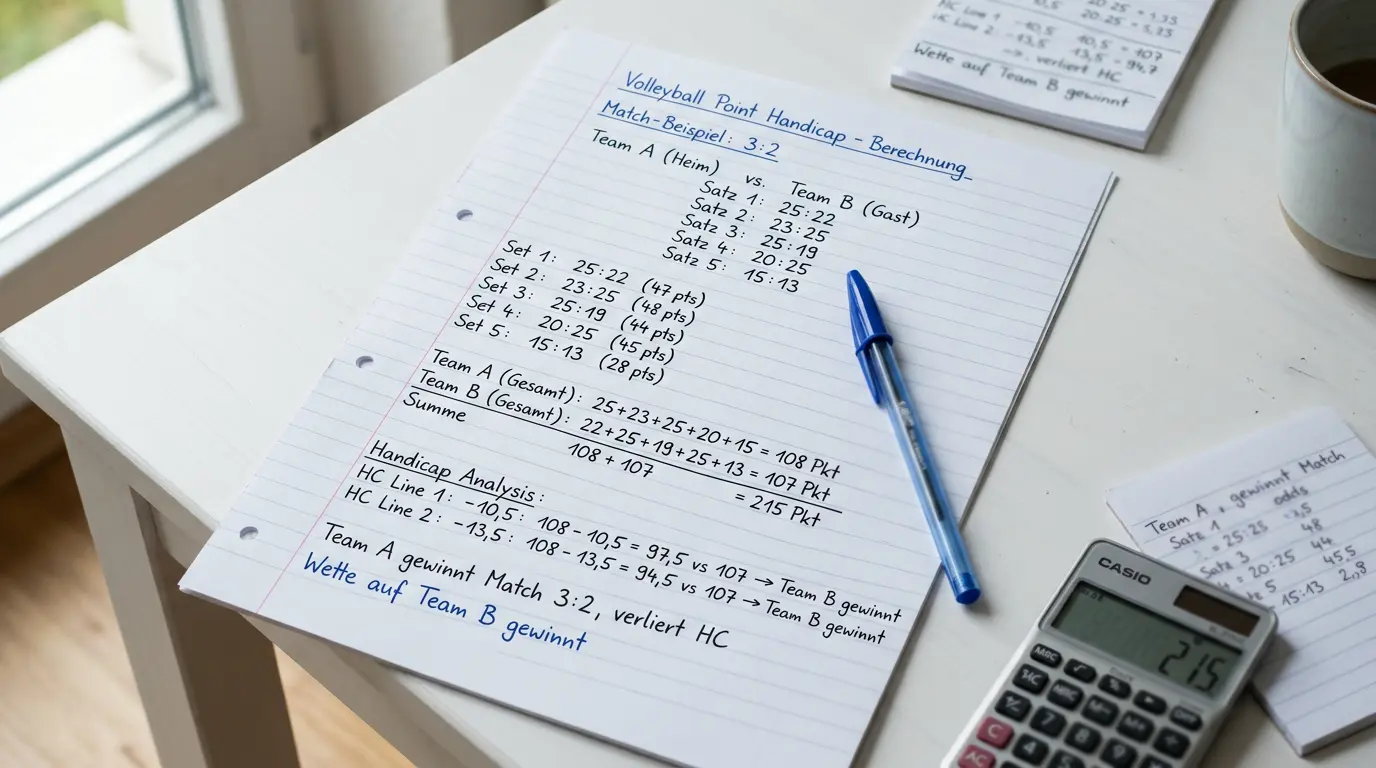 Volleyball Point Handicap - Berechnung
Match-Beispiel: 3:2
Team A (Heim) vs. Team B (Gast)
Satz 1: 25:22
Satz 2: 23:25
Satz 3: 25:19
Satz 4: 20:25
Satz 5: 15:13
Set 1: 25:22 (47 pts)
Set 2: 23:25 (48 pts)
Set 3: 25:19 (44 pts)
Set 4: 20:25 (45 pts)
Set 5: 15:13 (28 pts)
Team A (Gesamt): 25+23+25+20+15 = 108 Pkt
Team B (Gesamt): 22+25+19+25+13 = 107 Pkt
Summe 108 + 107 = 215 Pkt
Handicap Analysis:
HC Line 1: -10,5: 108 - 10,5 = 97,5 vs 107 → Team B gewinnt
HC Line 2: -13,5: 108 - 13,5 = 94,5 vs 107 → Team B gewinnt
Team A gewinnt Match 3:2, verliert HC
Wette auf Team B gewinnt
20:25 =
HC Line 1 -10,5 10,5 = 107
HC Line 2 -13,5 13,5 = 94,7
verliert HC
Wette auf Team B gewinnt
Team A, gewinnt Match
Satz 1 odds
= 25:25
Satz 3 48
= 20:25 44
5 45,5
15:13 2,9
CASIO
215
MRC √ % ▶ OFF
7 8 9
C 4 5
AC